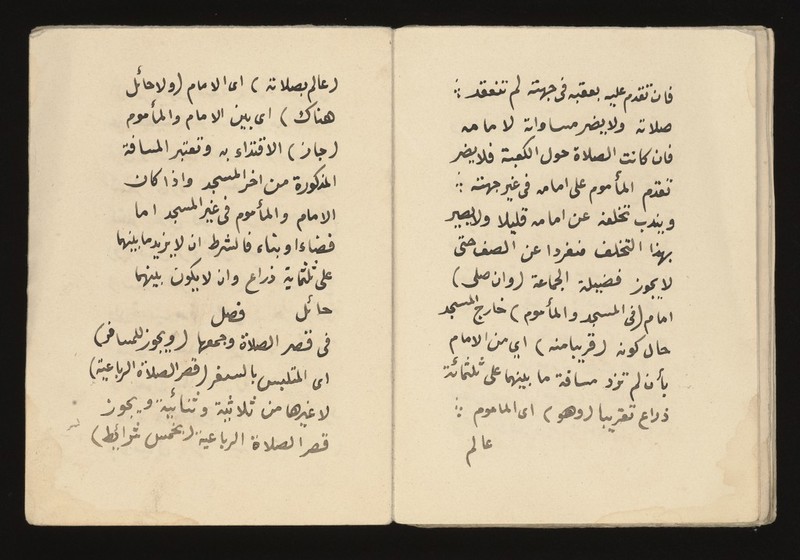 فان تقدم عليه بعقبه فى جهته لم تنعقد ⁘
صلاته ولا يضر مساواته لامامه
فان كانت الصلاة حول الكعبة فلا يضر
تقدم المأموم على امامه فى غير جهته ⁘
ويندب تخلفه عن امامه قليلا ولا يصير
بهذا التخلف منفردا عن الصف حتى
لا يجوز فضيلة الجماعة (وان صلى)
امام (فى المسجد والمأموم) خارج المسجد
حال كونه (قريبا منه) اي من الامام
بأن لم تزد مسافة ما بينهما على ثلثمائة
ذراع تقريبا (وهو) اى المأموم ⁘
عالم
(عالم بصلاته) اى الامام (ولا حائل
هناك) اى بين الامام والمأموم
(جاز) الاقتداء به وتعتبر المسافة
المذكورة من اخر المسجد واذا كان
الامام والمأموم فى غير المسجد اما
فضاءا وبناء فالشرط ان لا يزيد ما بينهما
على ثلثماية ذراع وان لا يكون بينهما
حائل فصل
فى قصر الصلاة وجمعها (ويجوز للمسافر)
اى المتلبس بالسفر (قصر الصلاة الرباعية)
لا غيرها من ثلاثية وثنائية ويجوز
قصر الصلاة الرباعية (بخمس شرائط)